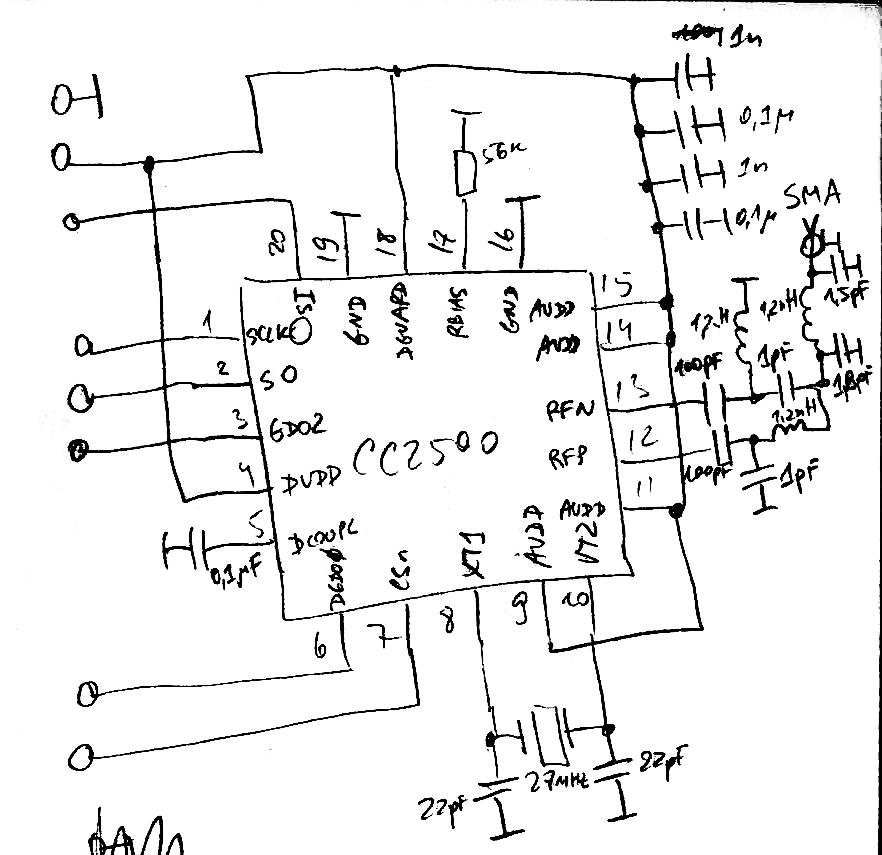 1n
0,1µ
1n
0,1µ
SMA
56K
20
19
18
17
16
SI
GND
DGUARD
RBIAS
GND
1
SCLK
2
SO
3
GDO2
4
DVDD
5
DCOUPL
0,1µF
CC2500
AVDD
15
AVDD
14
RFN
13
RFP
12
AVDD
11
1,2nH
1,2nH
1,5pF
100pF
1pF
1,8pF
1,2nH
100pF
1pF
CSn
XT1
AVDD
6
7
8
9
10
22pF
27MHz
22pF